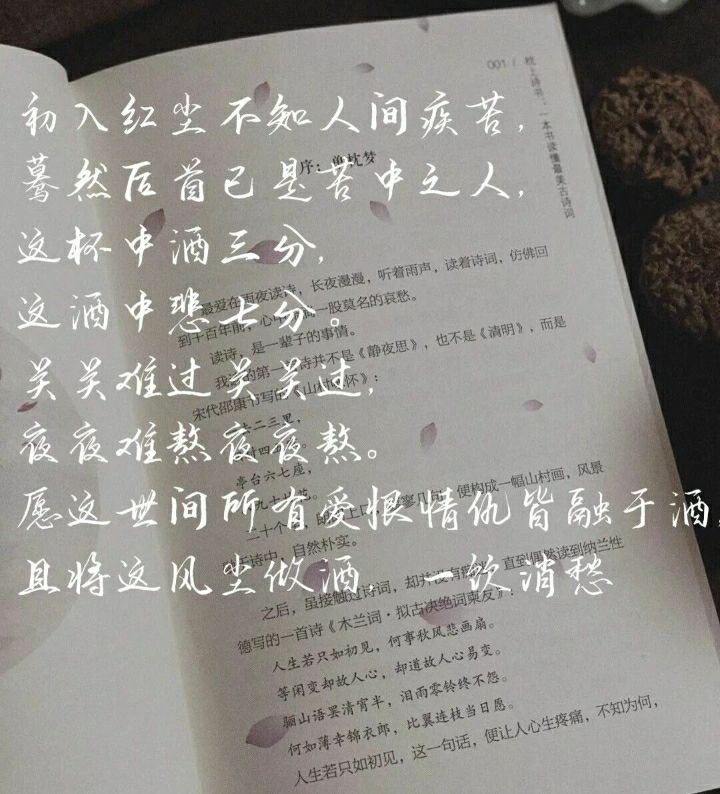 初入红尘不知人间疾苦，
蓦然后首已是苦中之人，
这杯中酒三分，
这酒中悲七分。
关关难过关关过，
夜夜难熬夜夜熬。
愿这世间所有爱恨情仇皆融于酒，
且将这风尘做酒，一饮消愁
001 / 枕上诗书：一本书读懂最美古诗词
序：枕梦
最爱在雨夜读诗，长夜漫漫，听着雨声，读着诗词，仿佛回
到千百年前，一股莫名的哀愁。
读诗，是一辈子的事情。
我的第一诗并不是《静夜思》，也不是《清明》，而是
宋代邵康节写的《山村咏怀》：
去二三里，
亭台六七座，
二十个字，便构成一幅山村画，风景
诗中，自然朴实。
之后，虽接触过诗词，却并没有直到偶然读到纳兰性
德写的一首诗《木兰词·拟古决绝词柬友》：
人生若只如初见，何事秋风悲画扇。
等闲变却故人心，却道故人心易变。
骊山语罢清宵半，泪雨零铃终不怨。
何如薄幸锦衣郎，比翼连枝当日愿。
人生若只如初见，这一句话，便让人心生疼痛，不知为何，